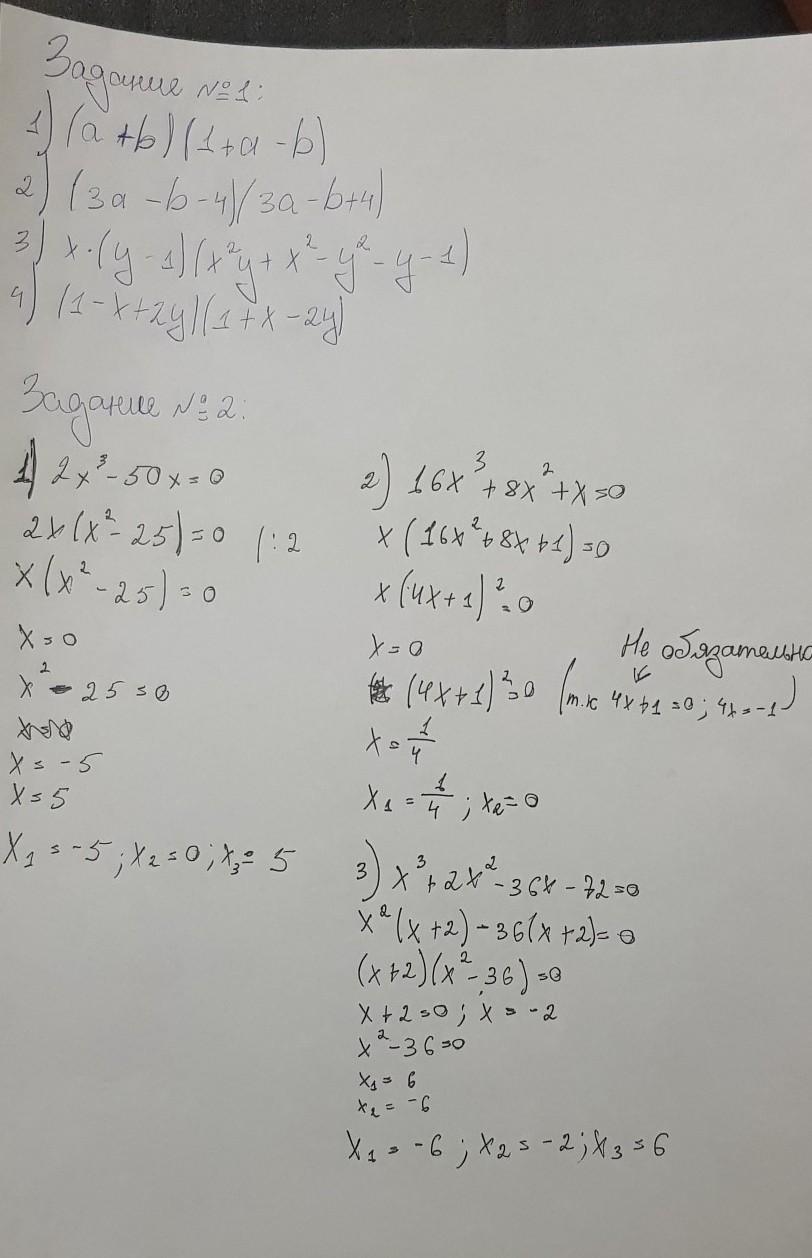 Задание №1:
1) (a+b)(1+a-b)
2) (3a-b-4)(3a-b+4)
3) x·(y-1)(x²y+x²-y²-y-1)
4) (1-x+2y)(1+x-2y)
Задание №2:
1) 2x³-50x=0
2x(x²-25)=0 |:2
x(x²-25)=0
x=0
x²-25=0
x=-5
x=5
x₁=-5; x₂=0; x₃=5
2) 16x³+8x²+x=0
x(16x²+8x+1)=0
x(4x+1)²=0
x=0
Не обязательно
(4x+1)²=0 (т.к 4x+1=0; 4x=-1)
x=1/4
x₁=1/4; x₂=0
3) x³+2x²-36x-72=0
x²(x+2)-36(x+2)=0
(x+2)(x²-36)=0
x+2=0; x=-2
x²-36=0
x₁=6
x₂=-6
x₁=-6; x₂=-2; x₃=6